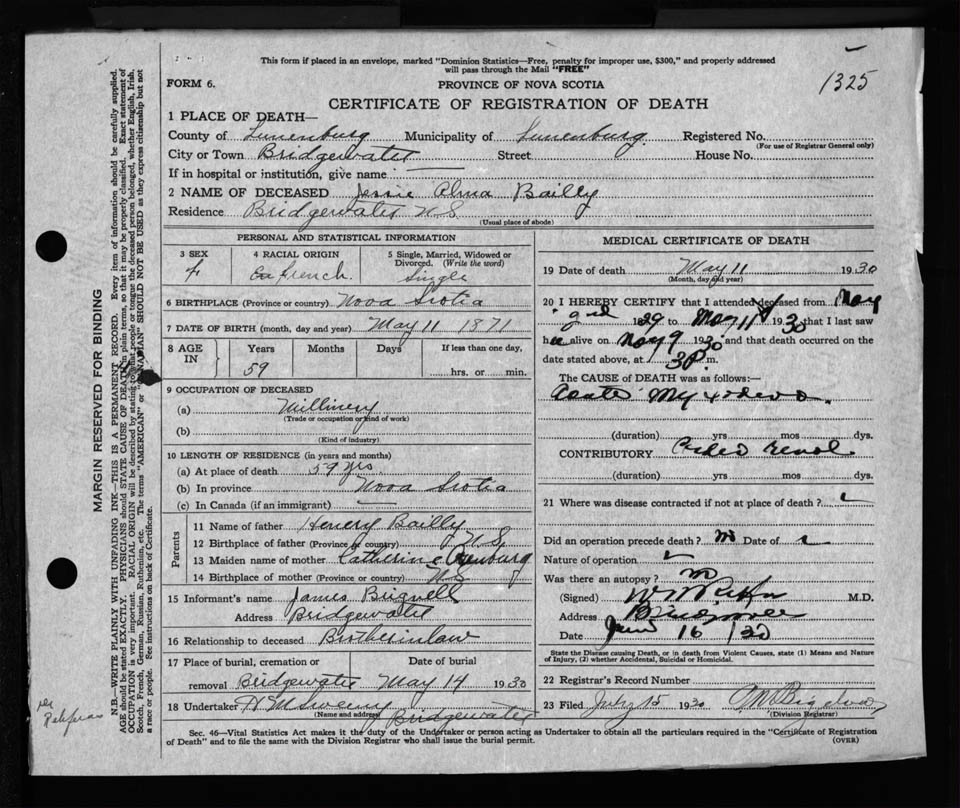 This form if placed in an envelope, marked "Dominion Statistics—Free, penalty for improper use, $300," and properly addressed
will pass through the Mail "FREE"
1325
FORM 6.
PROVINCE OF NOVA SCOTIA
CERTIFICATE OF REGISTRATION OF DEATH
1 PLACE OF DEATH—
County of Lunenburg Municipality of Lunenburg Registered No.
(For use of Registrar General only)
City or Town Bridgewater Street House No.
If in hospital or institution, give name
2 NAME OF DECEASED Jessie Alma Bailly
Residence Bridgewater N.S.
(Usual place of abode)
PERSONAL AND STATISTICAL INFORMATION
3 SEX
f
4 RACIAL ORIGIN
French
5 Single, Married, Widowed or
Divorced. (Write the word)
Single
6 BIRTHPLACE (Province or country) Nova Scotia
7 DATE OF BIRTH (month, day and year) May 11 1871
8 AGE IN
Years Months Days If less than one day,
59 hrs. or min.
9 OCCUPATION OF DECEASED
(a) Millinery
(Trade or occupation or kind of work)
(b)
(Kind of industry)
10 LENGTH OF RESIDENCE (in years and months)
(a) At place of death 59 yrs
(b) In province Nova Scotia
(c) In Canada (if an immigrant)
Parents
11 Name of father Henery Bailly
12 Birthplace of father (Province or country) N.S.
13 Maiden name of mother Catherine
14 Birthplace of mother (Province or country) N.S.
15 Informant's name James Bignell
Address Bridgewater
16 Relationship to deceased Brotherinlaw
17 Place of burial, cremation or Date of burial
removal Bridgewater May 14 1930
18 Undertaker H M Sweeny
(Name and address) Bridgewater
MEDICAL CERTIFICATE OF DEATH
19 Date of death May 11 1930
(Month, day and year)
20 I HEREBY CERTIFY that I attended deceased from May
1929 to May 11 1930 that I last saw
her alive on May 9 1930 and that death occurred on the
date stated above, at 30 P.m.
The CAUSE OF DEATH was as follows:—
Acute Myxodema
(duration) yrs mos dys.
CONTRIBUTORY Cardio renal
(duration) yrs mos dys.
21 Where was disease contracted if not at place of death?
Did an operation precede death? no Date of
Nature of operation
Was there an autopsy? no
(Signed) M.D.
Address
Date June 16 / 30
State the Disease causing Death, or in death from Violent Causes, state (1) Means and Nature
of Injury, (2) whether Accidental, Suicidal or Homicidal.
22 Registrar's Record Number
23 Filed July 15 1930
(Division Registrar)
Sec. 46—Vital Statistics Act makes it the duty of the Undertaker or person acting as Undertaker to obtain all the particulars required in the "Certificate of Registration
of Death" and to file the same with the Division Registrar who shall issue the burial permit.
(OVER)
MARGIN RESERVED FOR BINDING
N.B.—WRITE PLAINLY WITH UNFADING INK—THIS IS A PERMANENT RECORD. Every item of information should be carefully supplied.
AGE should be stated EXACTLY. PHYSICIANS should STATE CAUSE OF DEATH in plain terms, so that it may be properly classified. Exact statement of
OCCUPATION is very important. RACIAL ORIGIN will be described by stating to what people or tongue the deceased person belonged, whether English, Irish,
Scotch, French, German, Russian, Ruthenian, etc. The terms "AMERICAN" or "CANADIAN" SHOULD NOT BE USED as they express citizenship but not
a race or people. See instructions on back of Certificate.